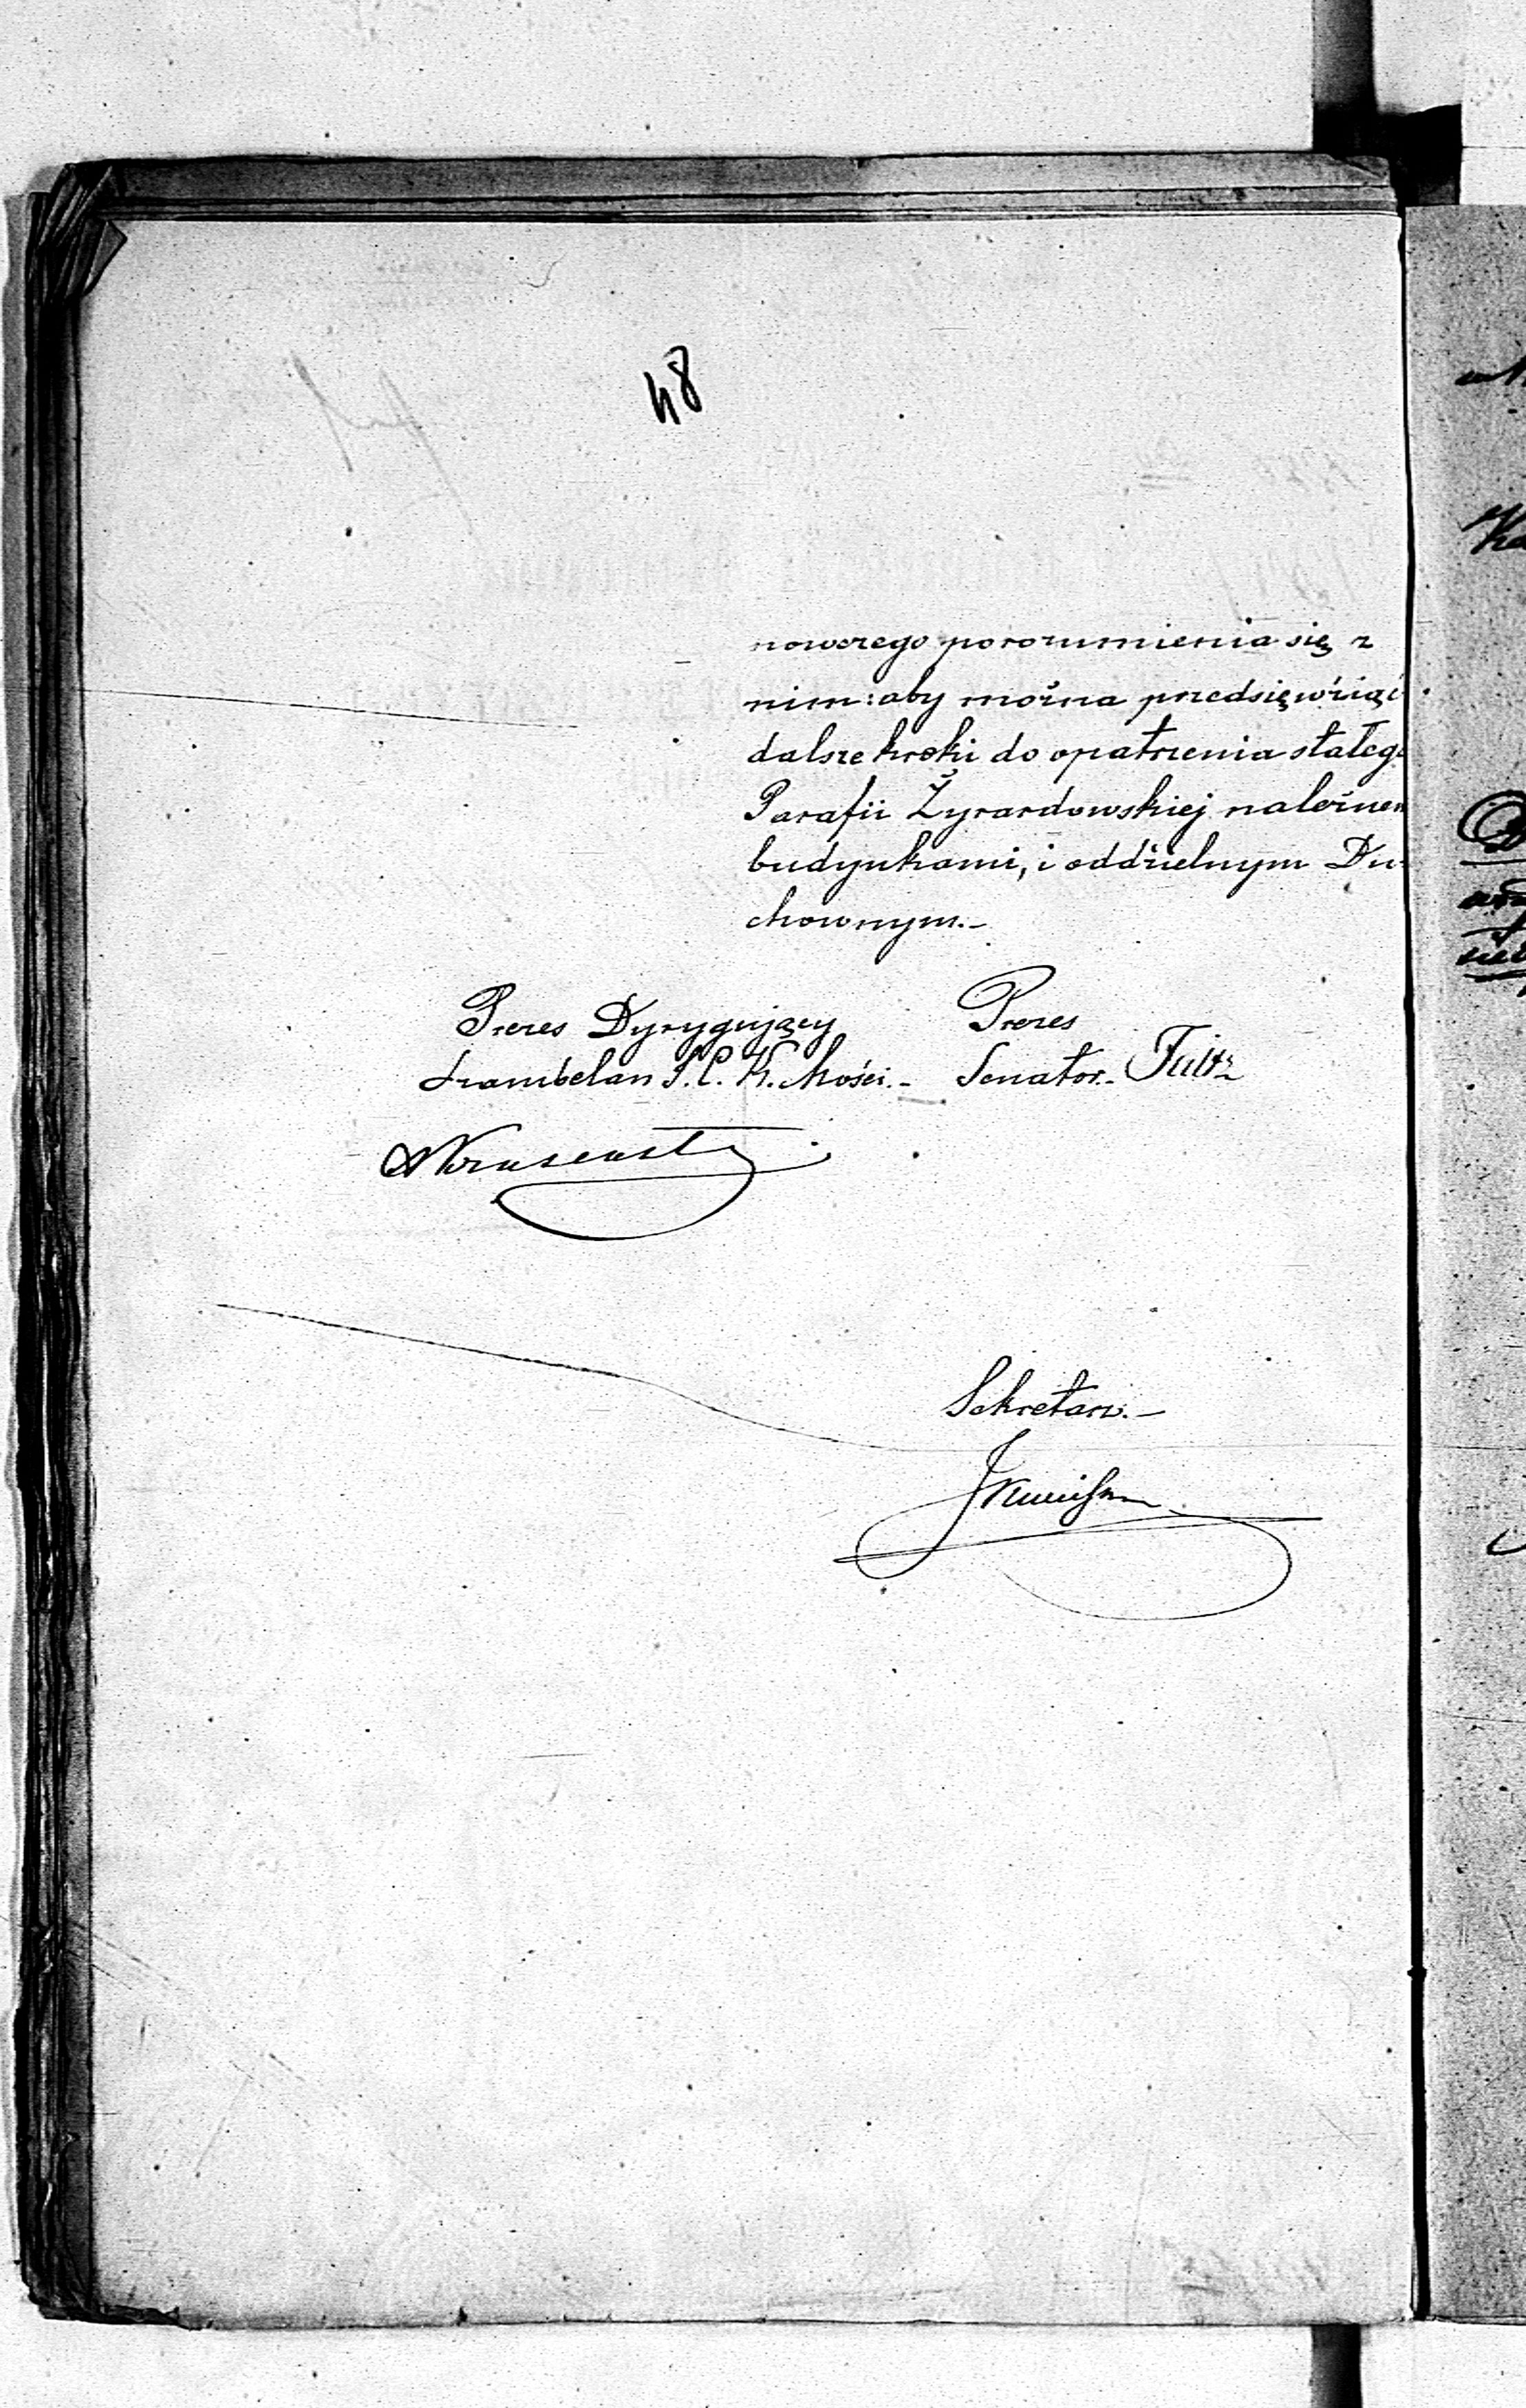 48
nowczego porozumienia się z
nim: aby można przedsięwziąć
dalsze kroki do opatrzenia stałego
Parafii Żyrardowskiej należnem
budynkami, i oddzielnym Du-
chownym.-
Prezes Dyrygujący
Szambelan J. C. K. Mości.-
Prezes
Senator.-
Sekretarz.-